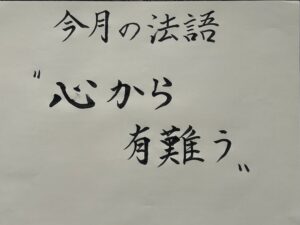 今月の法語
〝心から
有難う〟